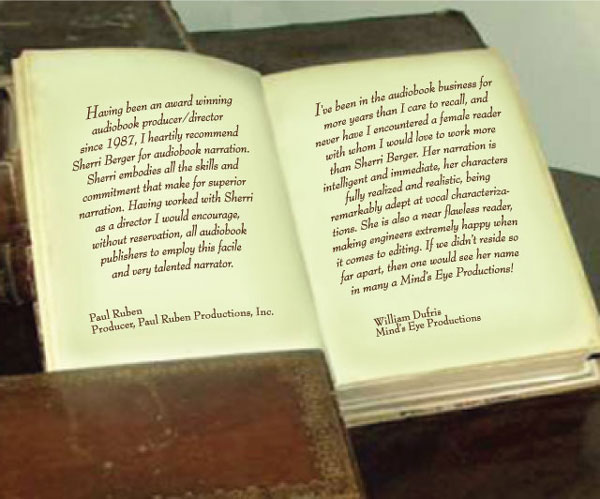 Having been an award winning
audiobook producer/director
since 1987, I heartily recommend
Sherri Berger for audiobook narration.
Sherri embodies all the skills and
commitment that make for superior
narration. Having worked with Sherri
as a director I would encourage,
without reservation, all audiobook
publishers to employ this facile
and very talented narrator.
Paul Ruben
Producer, Paul Ruben Productions, Inc.
I've been in the audiobook business for
more years than I care to recall, and
never have I encountered a female reader
with whom I would love to work more
than Sherri Berger. Her narration is
intelligent and immediate, her characters
fully realized and realistic, being
remarkably adept at vocal characteriza-
tions. She is also a near flawless reader,
making engineers extremely happy when
it comes to editing. If we didn't reside so
far apart, then one would see her name
in many a Mind's Eye Productions!
William Dufris
Mind's Eye Productions